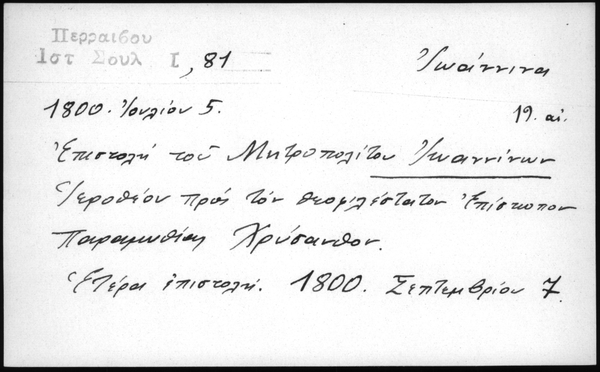 Περραιβου
Ιστ Σουλ Ι, 81
Ἰωάννινα
1800. Ἰουλίου 5.
19. αἰ.
Ἐπιστολή τοῦ Μητροπολίτου Ἰωαννίνων
Ἱεροθέου πρός τόν θεοφιλέστατον Ἐπίσκοπον
Παραμυθίας Χρύσανθον.
Ἑτέρα ἐπιστολή. 1800. Σεπτεμβρίου 7.